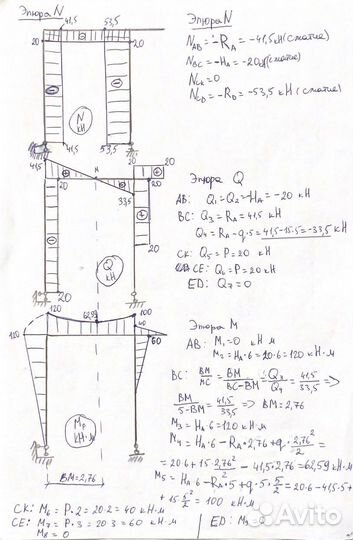 Эпюра N
41,5
53,5
20
20
N
кН
41,5
53,5
Эпюра N
N_AB = -R_A = -41,5 кН (сжатие)
N_BC = -H_A = -20 кН (сжатие)
N_CK = 0
N_CD = -R_D = -53,5 кН (сжатие)
41,5
20
20
20
20
33,5
20
Q
кН
20
Эпюра Q
AB: Q₁ = Q₂ = -H_A = -20 кН
BC: Q₃ = R_A = 41,5 кН
Q₄ = R_A - q·5 = 41,5-15·5 = -33,5 кН
CK: Q₅ = P = 20 кН
CE: Q₆ = P = 20 кН
ED: Q₇ = 0
120
100
120
62,59
40
60
M_P
кН·м
BM=2,76
Эпюра M
AB: M₁ = 0 кН м
M₂ = H_A·6 = 20·6 = 120 кН·м
BC: BM/MC = BM/(BC-BM) = Q₃/Q₄ = 41,5/33,5 =>
BM/(5-BM) = 41,5/33,5 => BM = 2,76
M₃ = H_A·6 = 120 кН·м
M₄ = H_A·6 - R_A·2,76 + q·2,76²/2 =
= 20·6 + 15·2,76²/2 - 41,5·2,76 = 62,59 кН·м
M₅ = H_A·6 - R_A·5 + q·5·5/2 = 20·6 - 41,5·5 +
+ 15·5²/2 = 100 кН·м
CK: M₆ = P·2 = 20·2 = 40 кН·м
CE: M₇ = P·3 = 20·3 = 60 кН·м
M₈ = 0
ED: M₉
Avito